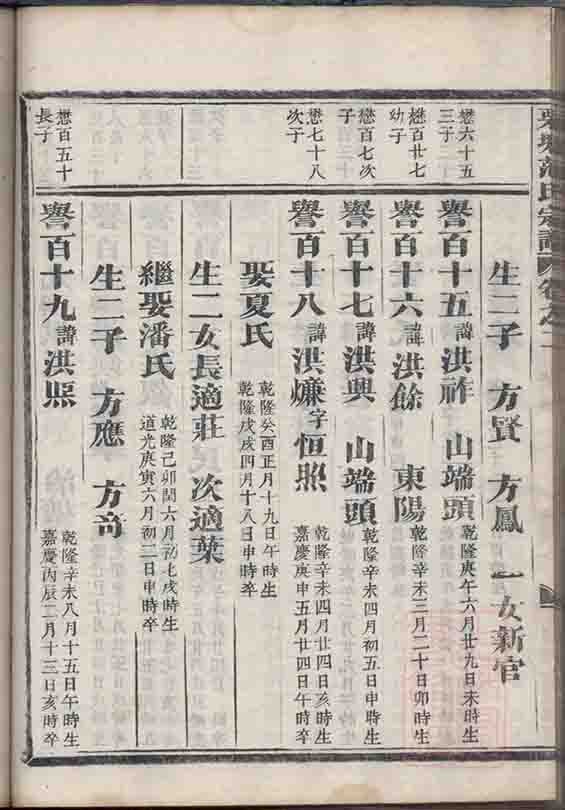 氏宗譜
生二子 方賢 方鳳 一女新官
懋六十五
三子
譽百十五諱洪祚 山端頭 乾隆庚午六月廿九日未時生
懋百廿七
幼子
譽百十六諱洪餘 東陽 乾隆辛未三月二十日卯時生
懋百七次
子
譽百十七諱洪興 山端頭 乾隆辛未四月初五日申時生
懋七十八
次子
譽百十八諱洪燫字恒照 乾隆辛未四月廿四日亥時生
嘉慶庚申五月廿四日午時卒
娶夏氏 乾隆癸酉正月十九日午時生
乾隆戊戌四月十八日申時卒
生二女長適莊 次適葉
繼娶潘氏 乾隆己卯閏六月初七戌時生
道光庚寅六月初二日申時卒
生二子 方應 方奇
懋百五十
長子
譽百十九諱洪熈 乾隆辛未八月十五日午時生
嘉慶丙辰二月十三日亥時卒